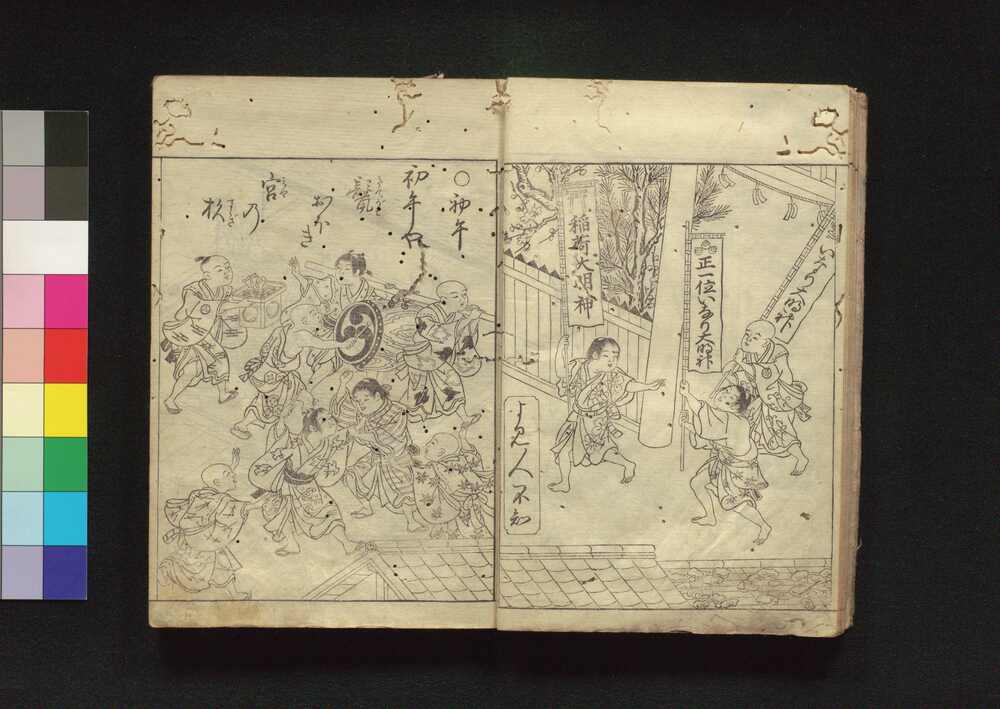 いなり大明神
正一位いなり大明神
稲荷大明神
よみ人不知
○初午
初午
おほき
宮
乃
杉